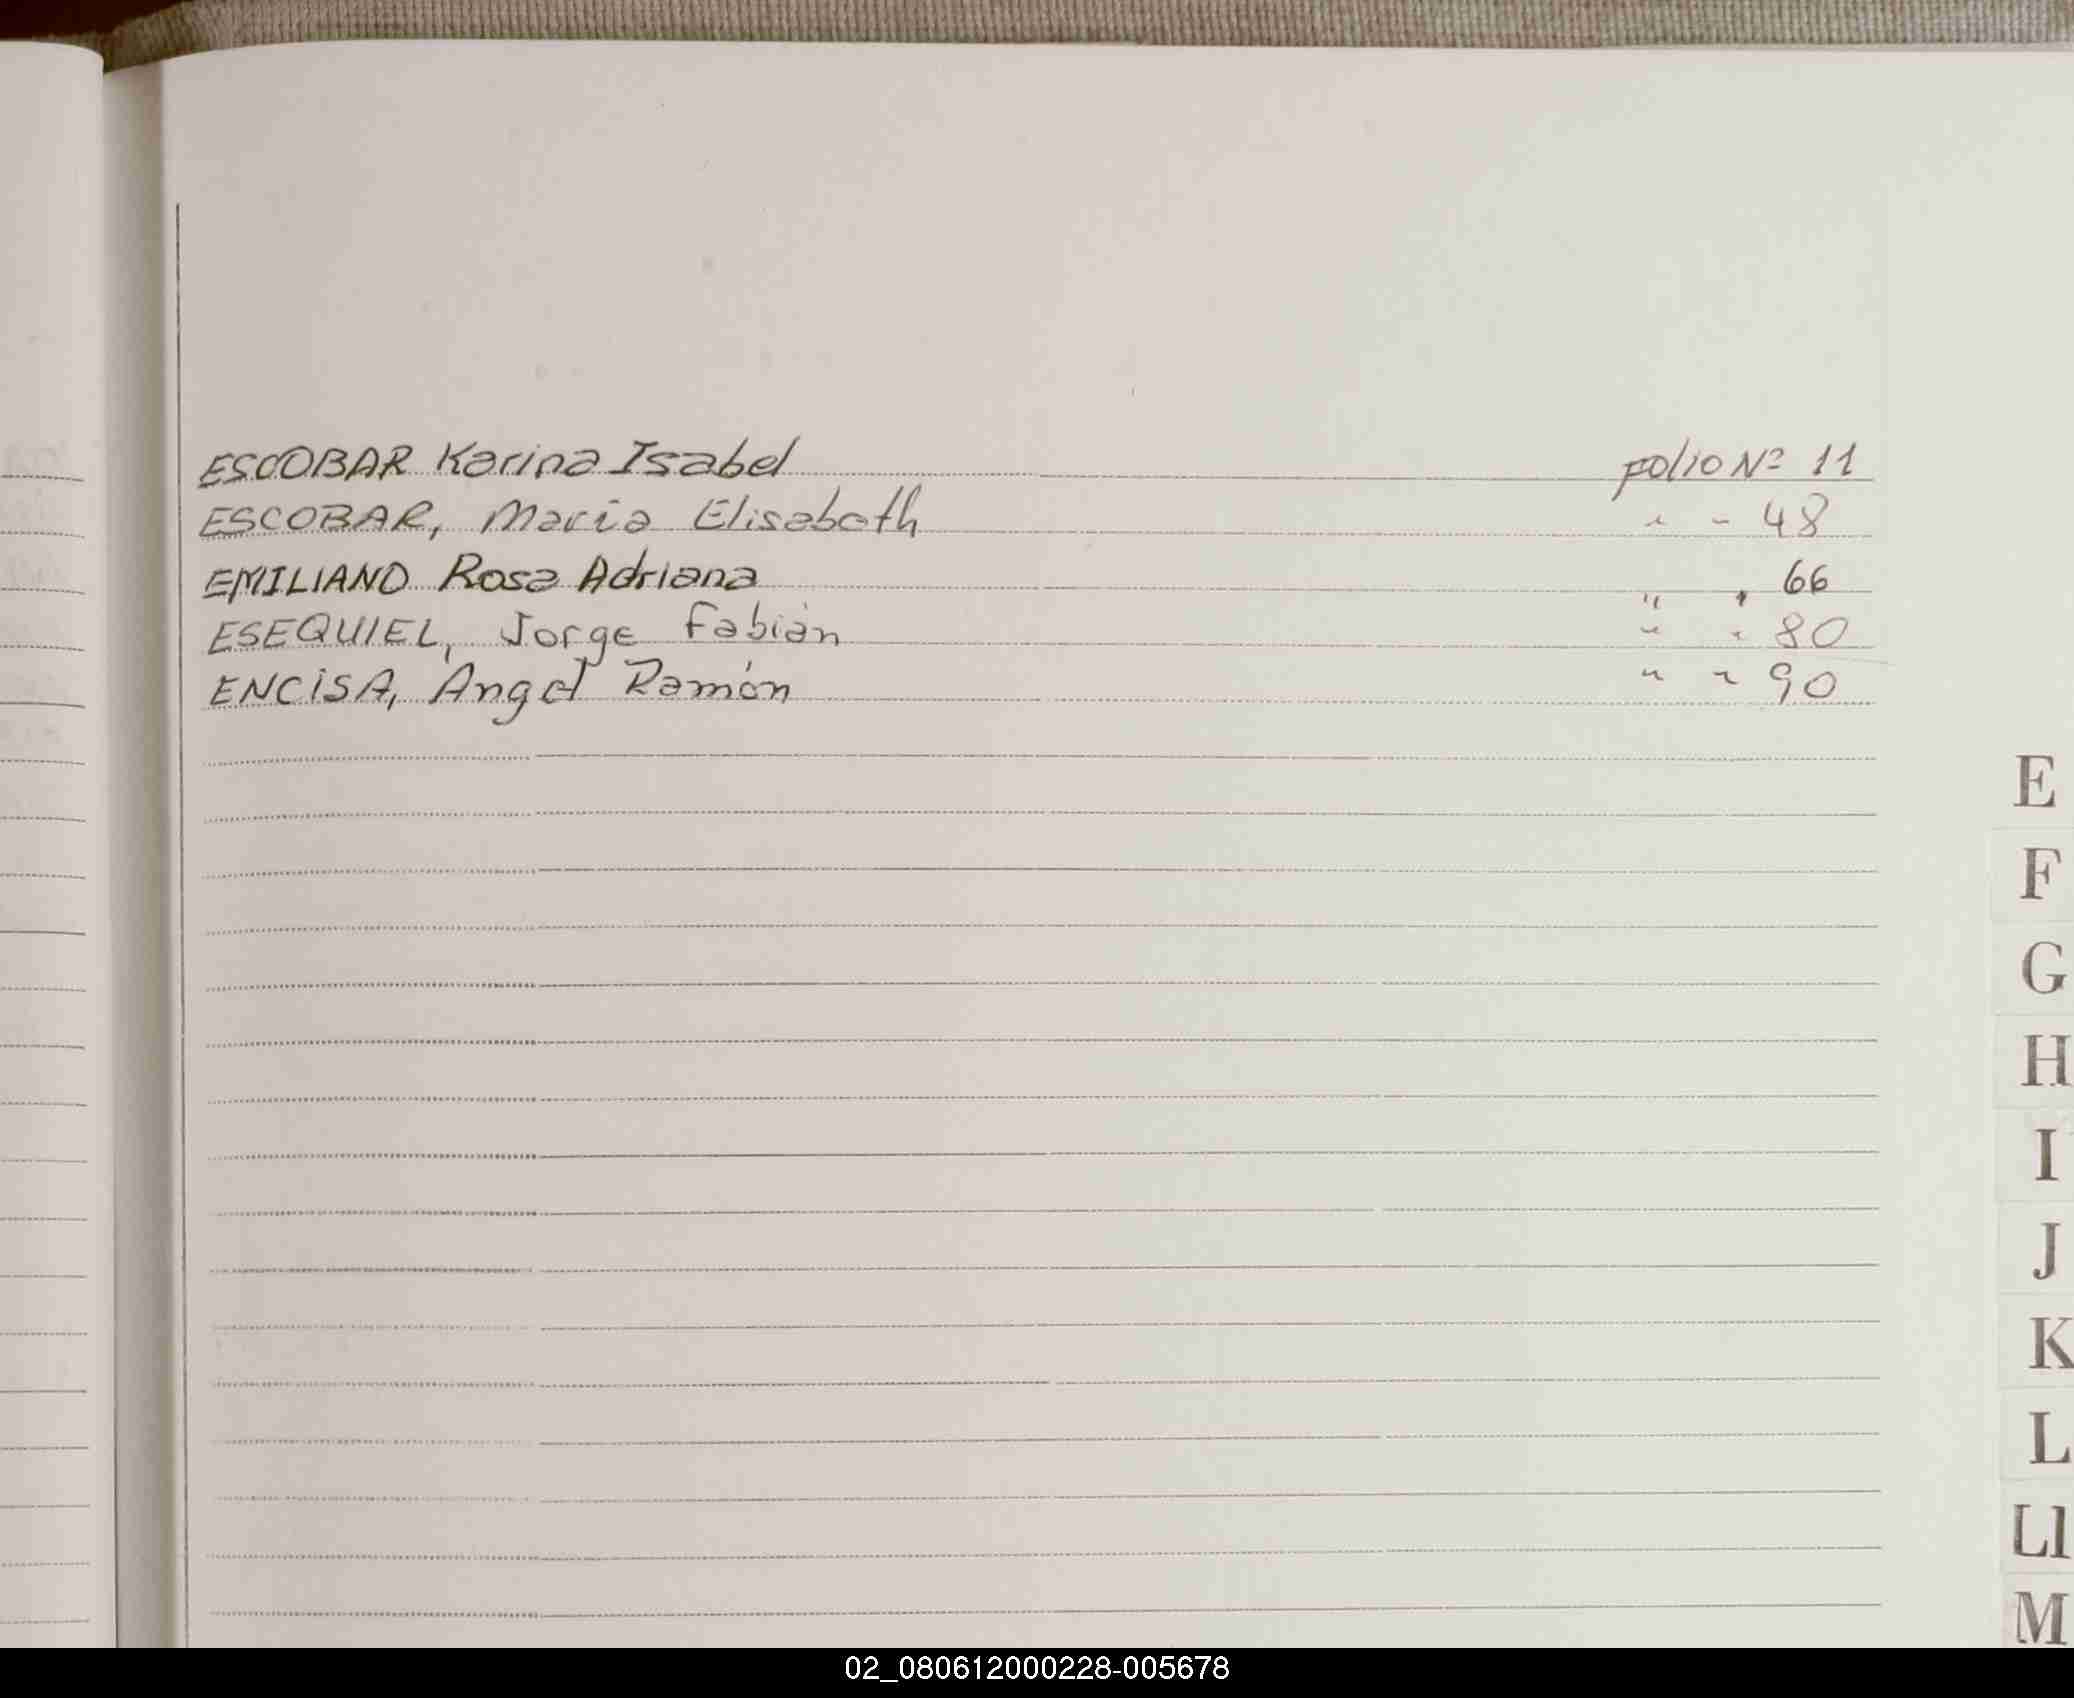 ESCOBAR Karina Isabel folio Nº 11
ESCOBAR, Maria Elisabeth " " 48
EMILIANO Rosa Adriana " " 66
ESEQUIEL, Jorge Fabián " " 80
ENCISA, Angel Ramón " " 90
E
F
G
H
I
J
K
L
Ll
M
02_080612000228-005678